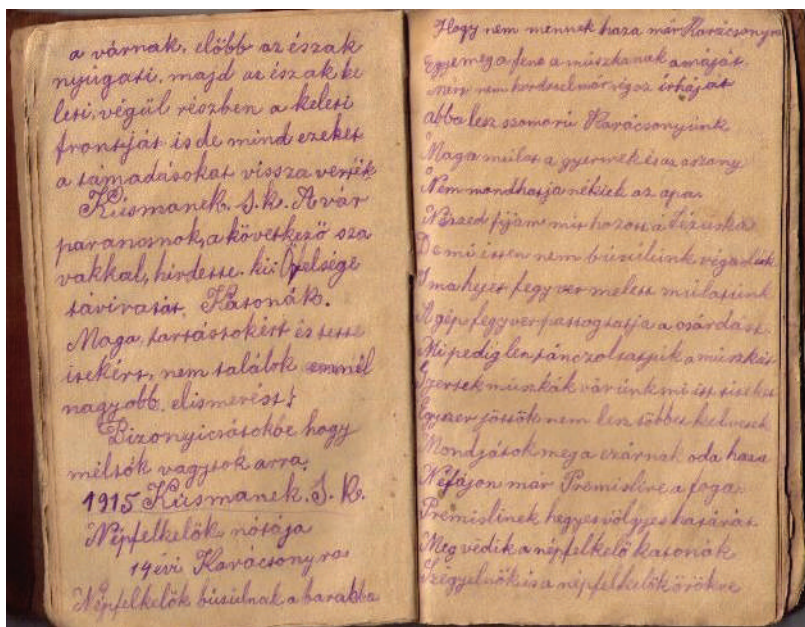 a várnak, előbb az észak
nyúgati, majd az észak ke
leti, végül részben a keleti
frontját is de mind ezeket
a támadásokat vissza verték
Kúsmanek. S. k. A vár
parancsnok, a következő sza
vakkal, hirdette. ki: Őfelsége
távíratát. Katonák.
Maga, tartástokért és tette
itekért, nem találok ennél
nagyobb. elismerést!
Bizonyicsátokbe hogy
méltók vagytok arra,
1915 Kúsmanek. S. k.
Népfelkelők nótája
14 évi Karácsonyra
Népfelkelők búsúlnak a barakba
Hogy nem mennek haza már Karácsonyra
Egye meg a fene a múszkának a máját
nem hordta el már vigoz irháját
abba lesz szomorú Karácsonyúnk
Maga múlat a gyermek és az aszony
Nem mondhatja nékiek az apa.
Nézzed fijam mit hozott a Jézuska
De mi itten nem búsúlúnk végadiúk
Ima hejet fegyver melett múlatúnk
A gép fegyver pattogtatja a csárdást.
Mi pedig len tánczoltatjúk a múszkát
Gyertek múszkák várúnk mi itt titeket
Egyszer jöttök nem lesz többet kedvetek
Mondjátok meg a czárnak oda haza
Nefájon már Premislire a foga.
Premislinek hegyes völgyes határát
Meg védik a népfelkelő katonák
a népfelkelők örökre